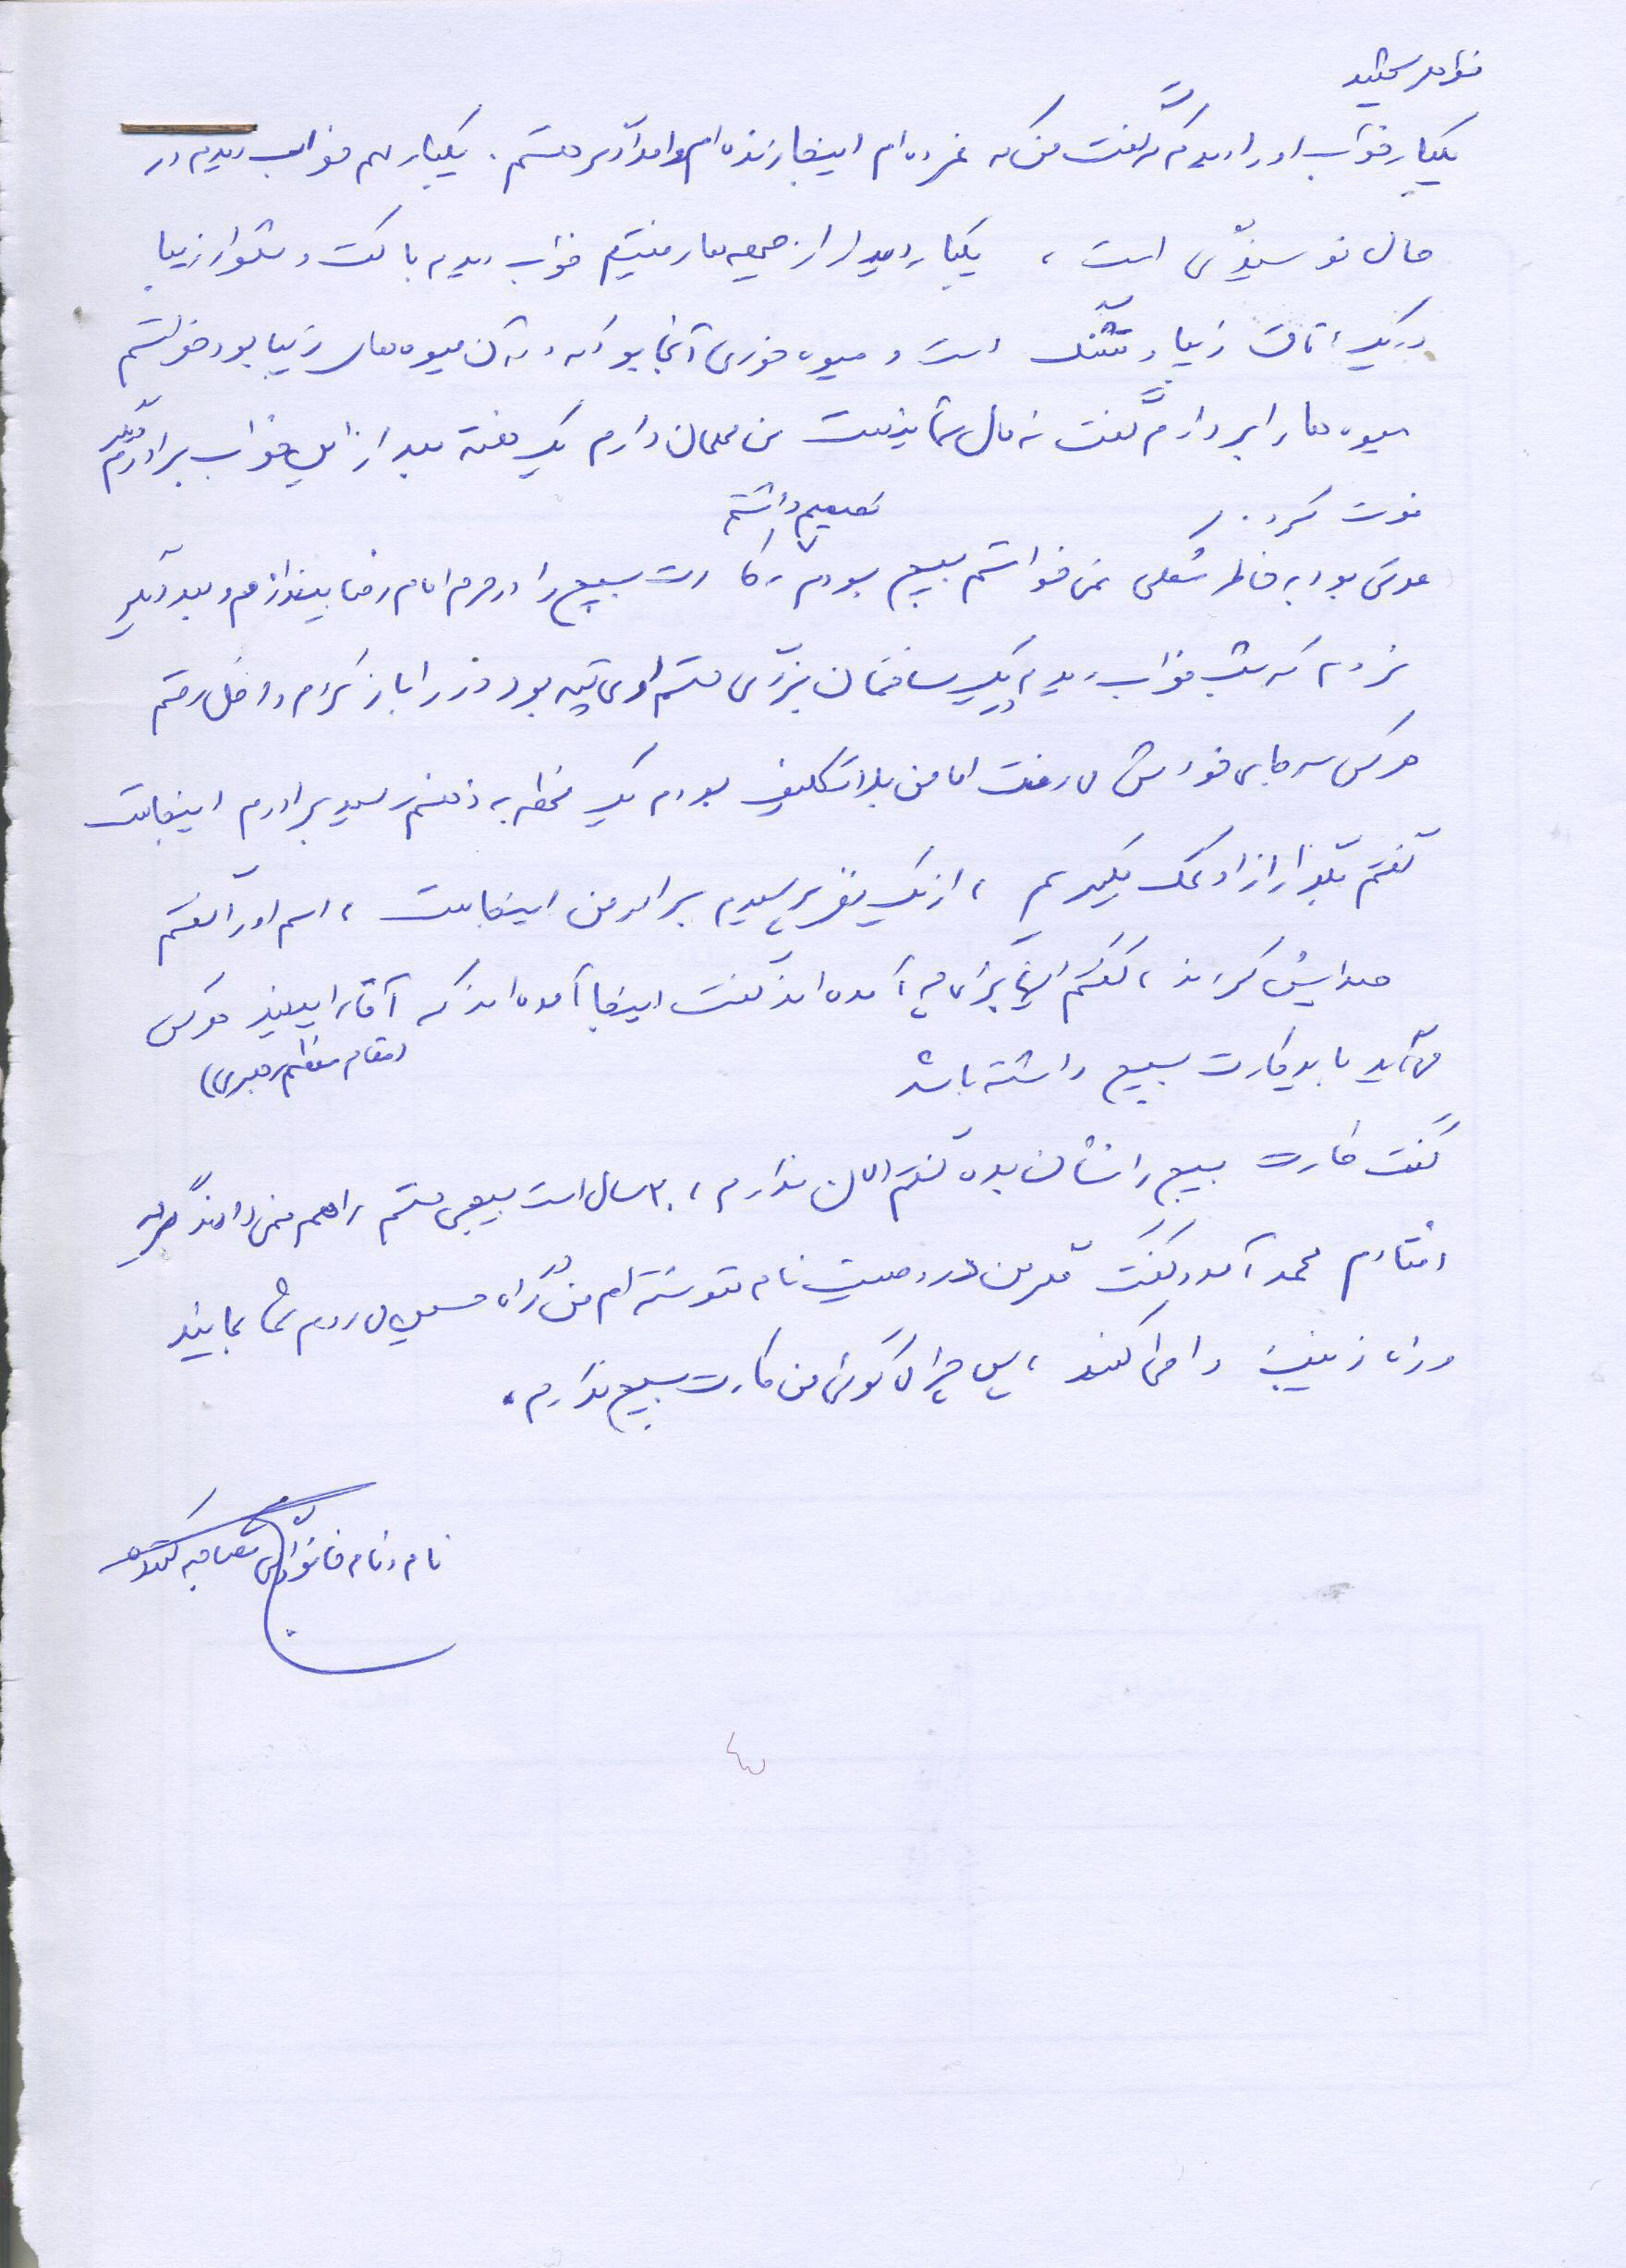 خواهر شهید
یکبار خواب او را دیدم که گفت من که نمرده ام اینجا زنده ام و امدادگر هستم. یکبار هم خواب دیدم در
حال نو سیدی است، یکبار بعد از از جبهه ها رفتیم خواب دیدم با کت و شلوار زیبا
در یک اتاق زیبا و قشنگ است و میوه خوری آنجا بود که در آن میوه های زیبا بود خواستم
میوه ها را بردارم گفت نه مال شما نیست من مهمان دارم یک هفته بعد از این خواب برادر دیگرم
فوت کرد.
مدتی بود به خاطر شغلی نمی خواستم بسیج بروم تصمیم داشتم کارت بسیج را در حرم امام رضا بیندازم و بعد دیگر
نروم که شب خواب دیدم در یک ساختمان بزرگی هستم اوی تپه بود در را باز کردم داخل رفتم
هر کس سر جای خودش می رفت اما من بلاتکلیف بودم یک لحظه به ذهنم رسید برادرم اینجاست
گفتم بگذار از او کمک بگیرم، از یک نفر پرسیدم برادر من اینجاست، اسم او را گفتم
صدایش کردند، گفتم اینها برای چه آمده اند گفت اینجا آمده اند که آقا را ببینند هر کس
(مقام معظم رهبری)
می آید باید کارت بسیج داشته باشد
گفت کارت بسیج را نشان بده گفتم الان ندارم، ۲۰ سال است بسیجی هستم راهم نمی دادند گریه
افتادم محمد آمد و گفت مگر من در وصیت نامه ننوشته ام من راه حسین می روم شما بیایید
و راه زینب را طی کنید، پس چرا می گوئی من کارت بسیج ندارم.
نام و نام خانوادگی مصاحبه کننده